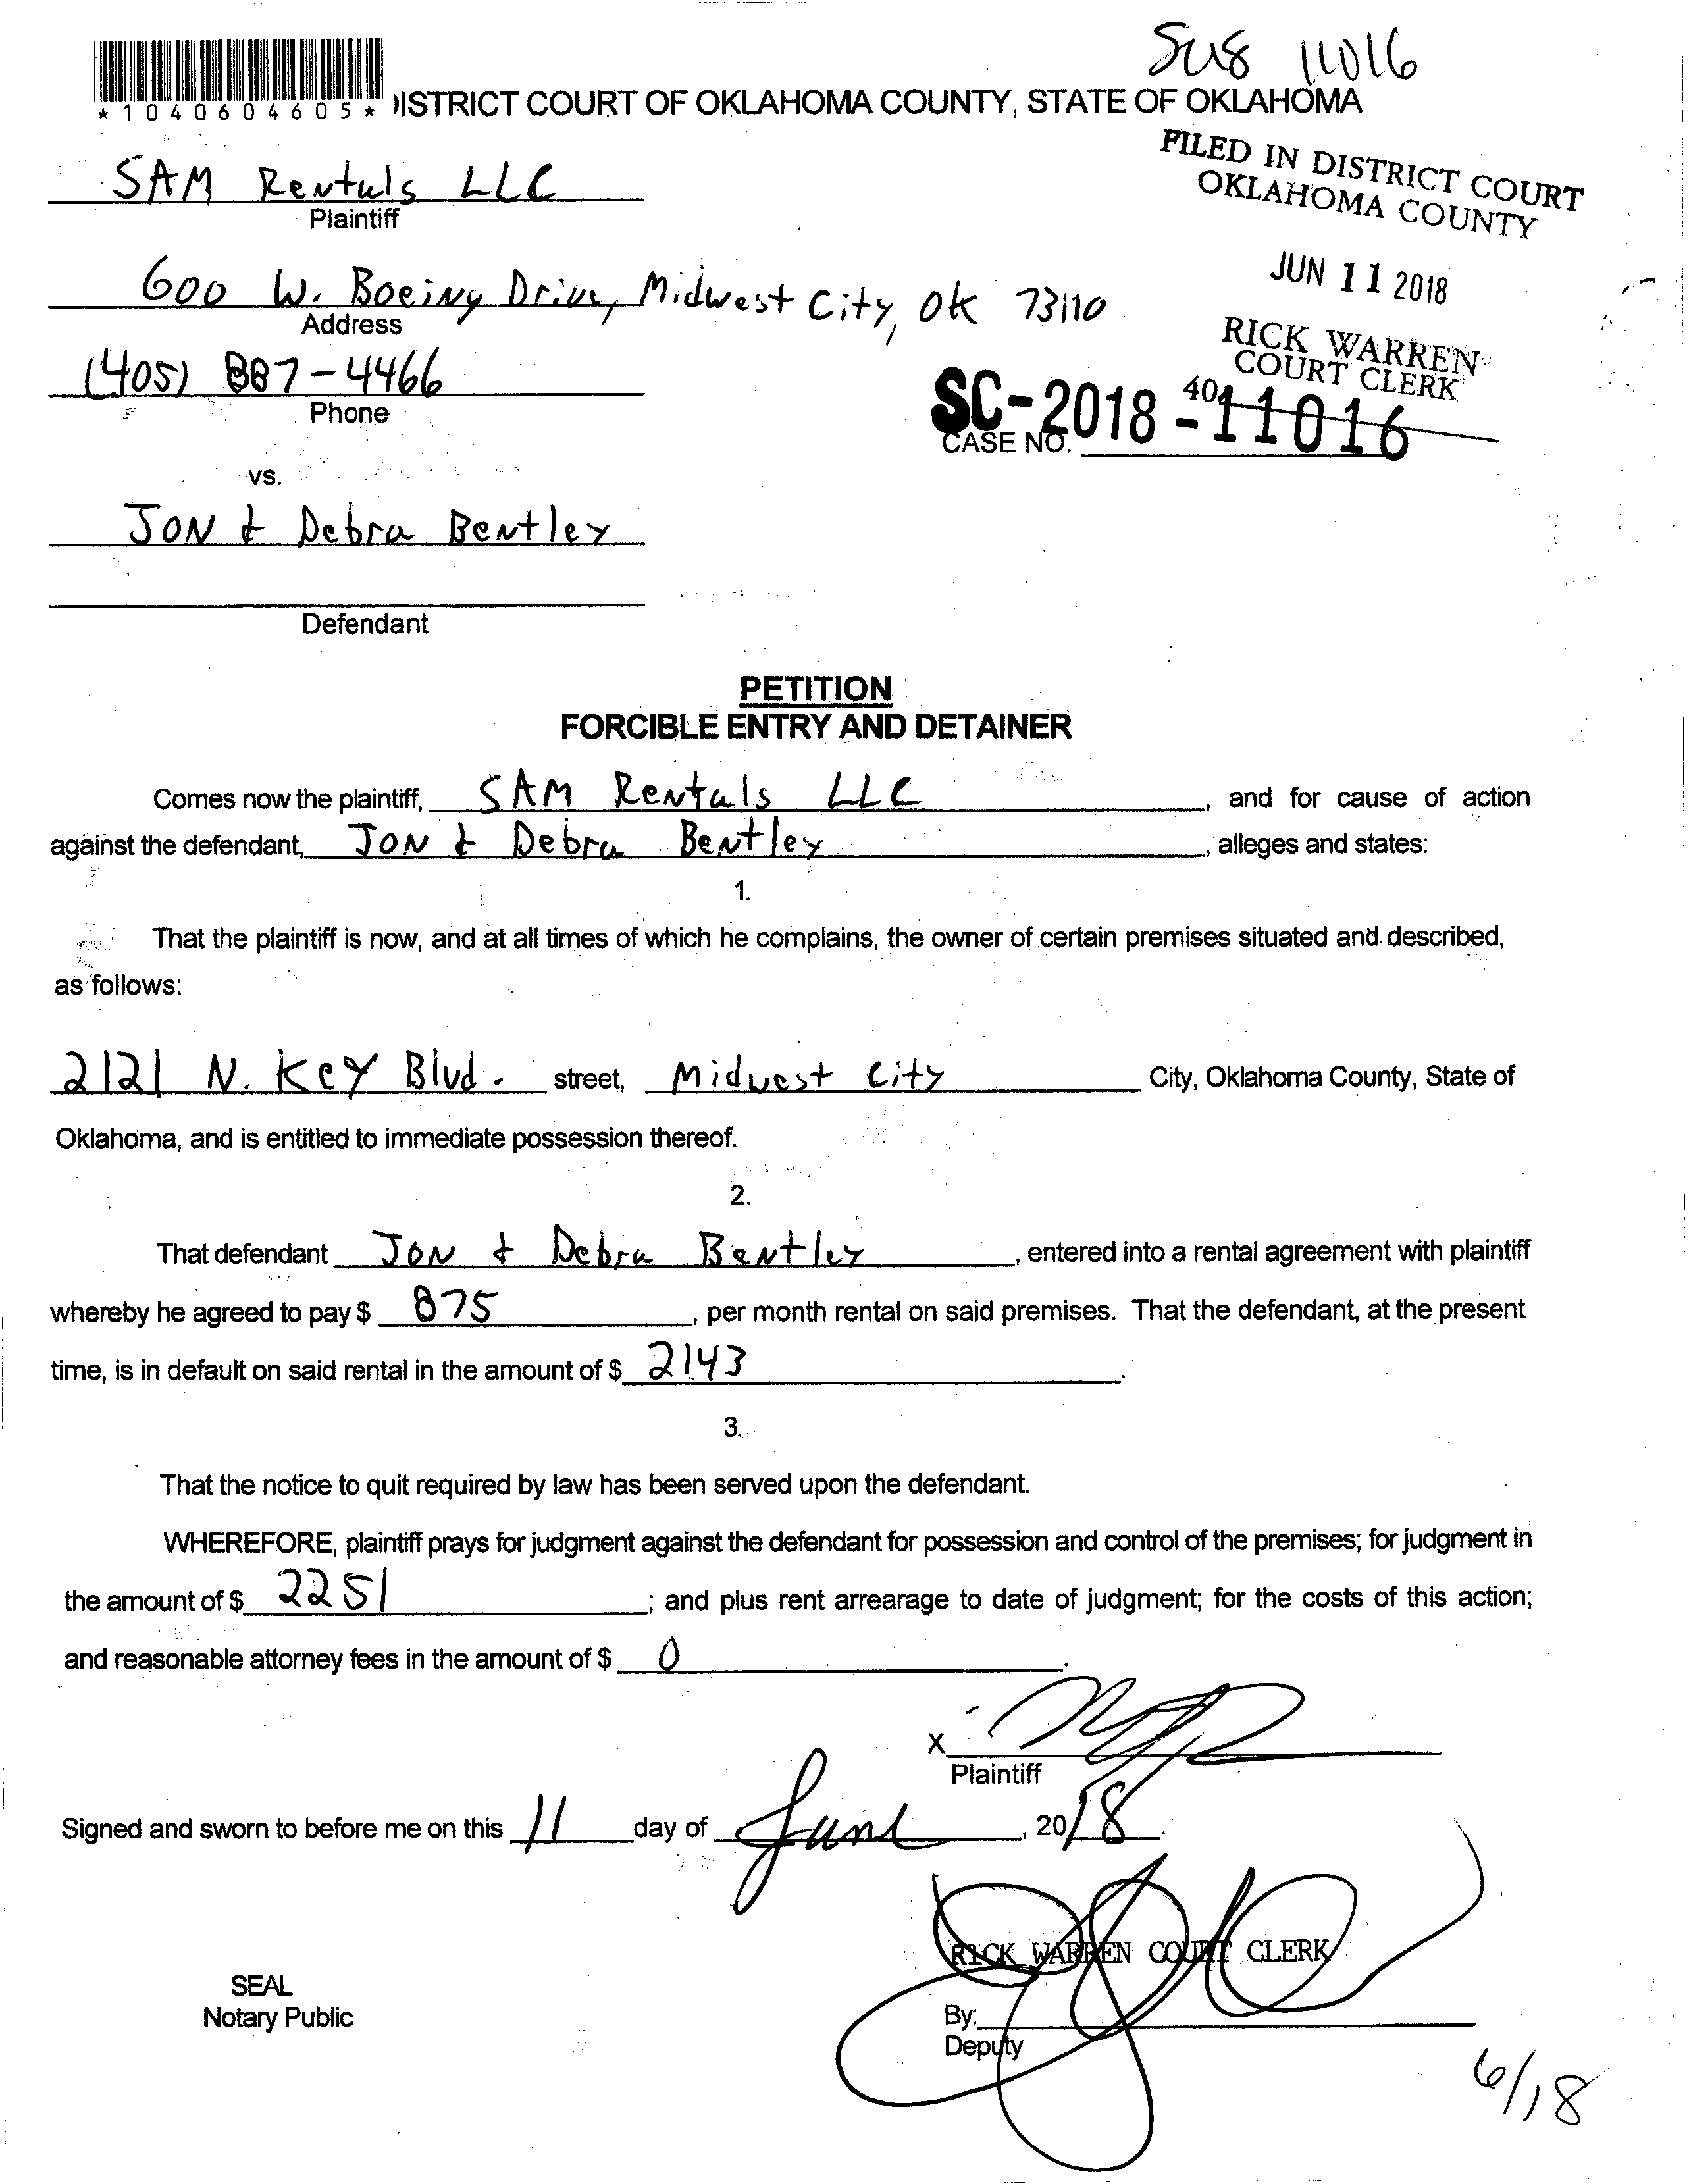 SUS 11016
*1040604605*
DISTRICT COURT OF OKLAHOMA COUNTY, STATE OF OKLAHOMA
FILED IN DISTRICT COURT
OKLAHOMA COUNTY
JUN 11 2018
RICK WARREN
COURT CLERK
40
SAM Rentals LLC
Plaintiff
600 W. Boeing Drive, Midwest City, OK 73110
Address
(405) 887-4466
Phone
SC-2018-11016
CASE NO.
vs.
JON & Debra Bentley
Defendant
PETITION
FORCIBLE ENTRY AND DETAINER
Comes now the plaintiff, SAM Rentals LLC, and for cause of action
against the defendant, JON & Debra Bentley, alleges and states:
1.
That the plaintiff is now, and at all times of which he complains, the owner of certain premises situated and described,
as follows:
2121 N. Key Blvd. street, Midwest City City, Oklahoma County, State of
Oklahoma, and is entitled to immediate possession thereof.
2.
That defendant JON & Debra Bentley, entered into a rental agreement with plaintiff
whereby he agreed to pay $ 875, per month rental on said premises. That the defendant, at the present
time, is in default on said rental in the amount of $ 2143.
3.
That the notice to quit required by law has been served upon the defendant.
WHEREFORE, plaintiff prays for judgment against the defendant for possession and control of the premises; for judgment in
the amount of $ 2251; and plus rent arrearage to date of judgment; for the costs of this action;
and reasonable attorney fees in the amount of $ 0.
X
Plaintiff
Signed and sworn to before me on this 11 day of June, 2018.
RICK WARREN COURT CLERK
SEAL
Notary Public
By:
Deputy
6/18